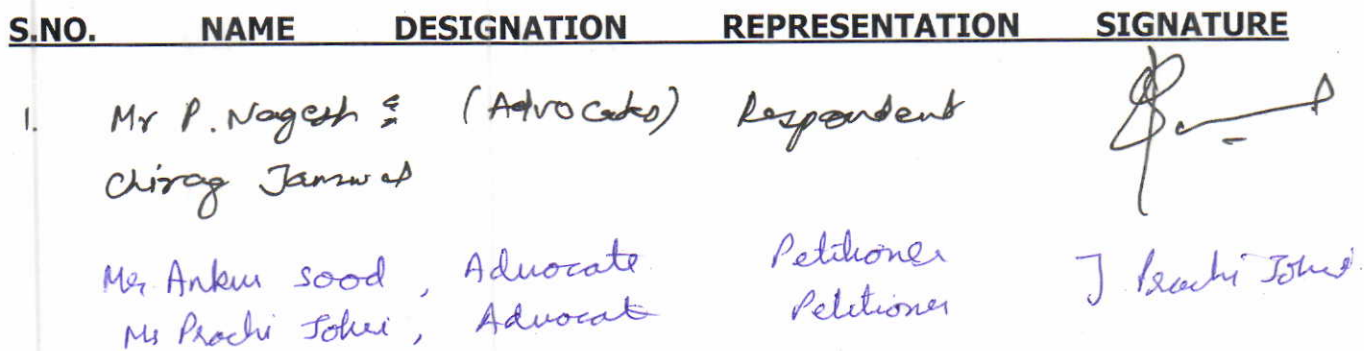 S.NO. NAME DESIGNATION REPRESENTATION SIGNATURE
1. Mr P. Nagesh & (Advocates) Respondent
Chirag
Mr Ankur Sood, Advocate Petitioner
Ms Prachi Johri, Advocate Petitioner Prachi Johri